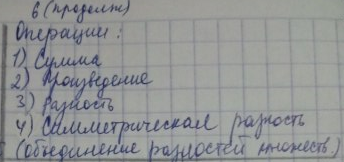 6 (продолж)
Операции:
1) Сумма
2) Произведение
3) Разность
4) Симметрическая разность
(объединение разностей множеств)